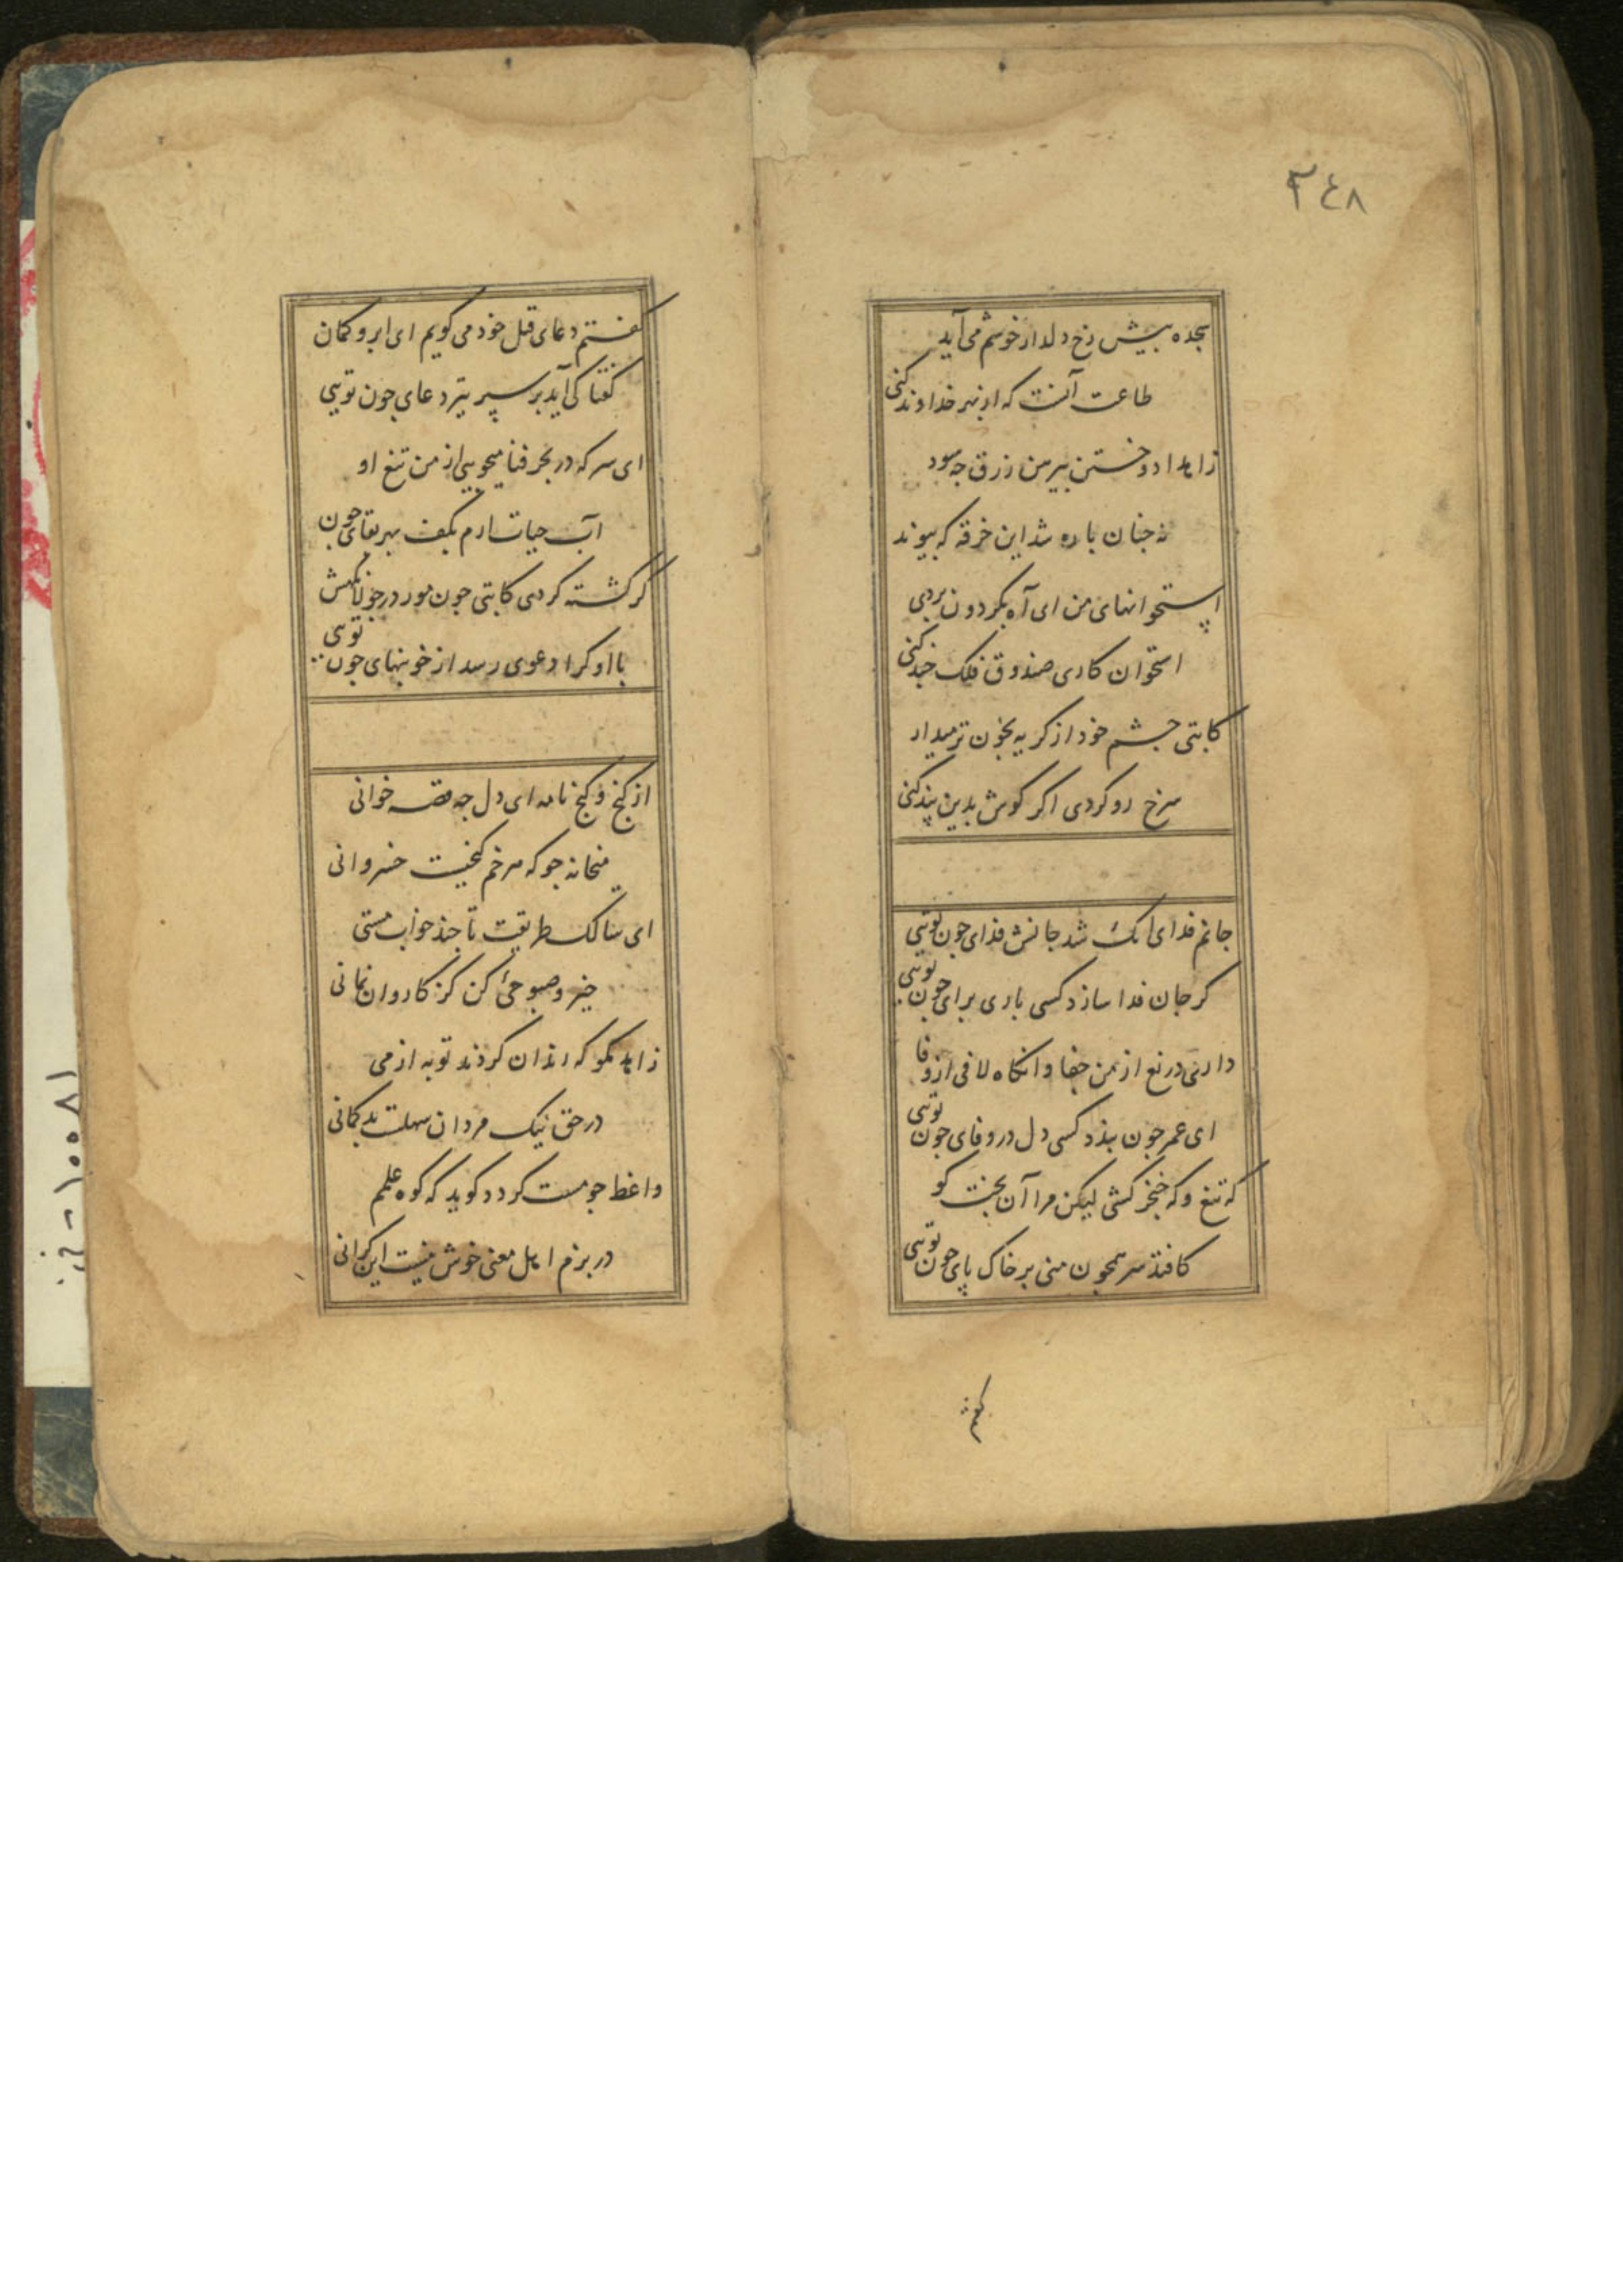 ۳٤٨
سجده پیش رخ دلدار خوشم می‌آید
طاعت آنست که از بهر خداوند کنی
زاهدا دوختن پیرهن زرق چه سود
نه چنان پاره شد این خرقه که پیوند
استخوانهای من ای آه بگردون بردی
استخوان کاری صندوق فلک چند کنی
کاتبی چشم خود از گریه بخون تر میدار
سرخ رو گردی اگر گوش بدین پند کنی
جانم فدای آنک شد جانش فدای چون تویی
گر جان فدا سازد کسی باری برای چون تویی
داری دریغ از من جفا وانگاه لافی از وفا
ای عمر چون بندد کسی دل در وفای چون تویی
که تیغ و که خنجر کشی لیکن مرا آن بخت کو
کافتد سر همچون منی بر خاک پای چون تویی
گفتم
گفتم دعای قتل خود می گویم ای ابرو کمان
گفتا کی آید بر سپر تیر دعای چون تویی
ای سر که در بحر فنا میجویی از من تیغ او
آب حیات آرم بکف بهر بقای چون
گر کشته گردی کاتبی چون مور در جولانگهش
با او کرا دعوی رسد از خونبهای چون تویی
از گنج و گنج نامه ای دل چه قصه خوانی
میخانه جو که هر خم گنجیست خسروانی
ای سالک طریقت تا چند خواب مستی
خیز و صبوحئ کن کز کاروان نمانی
زاهد مگو که رندان کردند توبه از می
در حق نیک مردان سهلست بد گمانی
واعظ چو مست گردد گوید که کوه علمم
در بزم اهل معنی خوش نیست این گرانی
۱۸۰۰۱ -